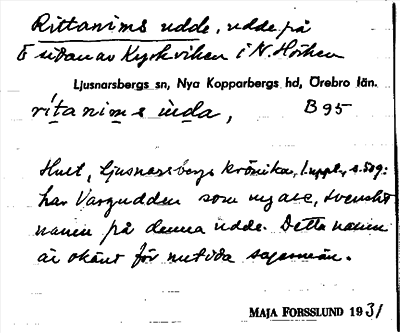 Rittanims udde, udde på
E sidan av Kyrkviken i N. Hörken
Ljusnarsbergs sn, Nya Kopparbergs hd, Örebro län.
ritanims ùda, B 95
Hult, Ljusnarsbergs krönika, 1. uppl., s. 509:
har Vargudden som nyare, svenskt
namn på denna udde. Detta namn
är okänt för nutida sagesmän.
MAJA FORSSLUND 1931